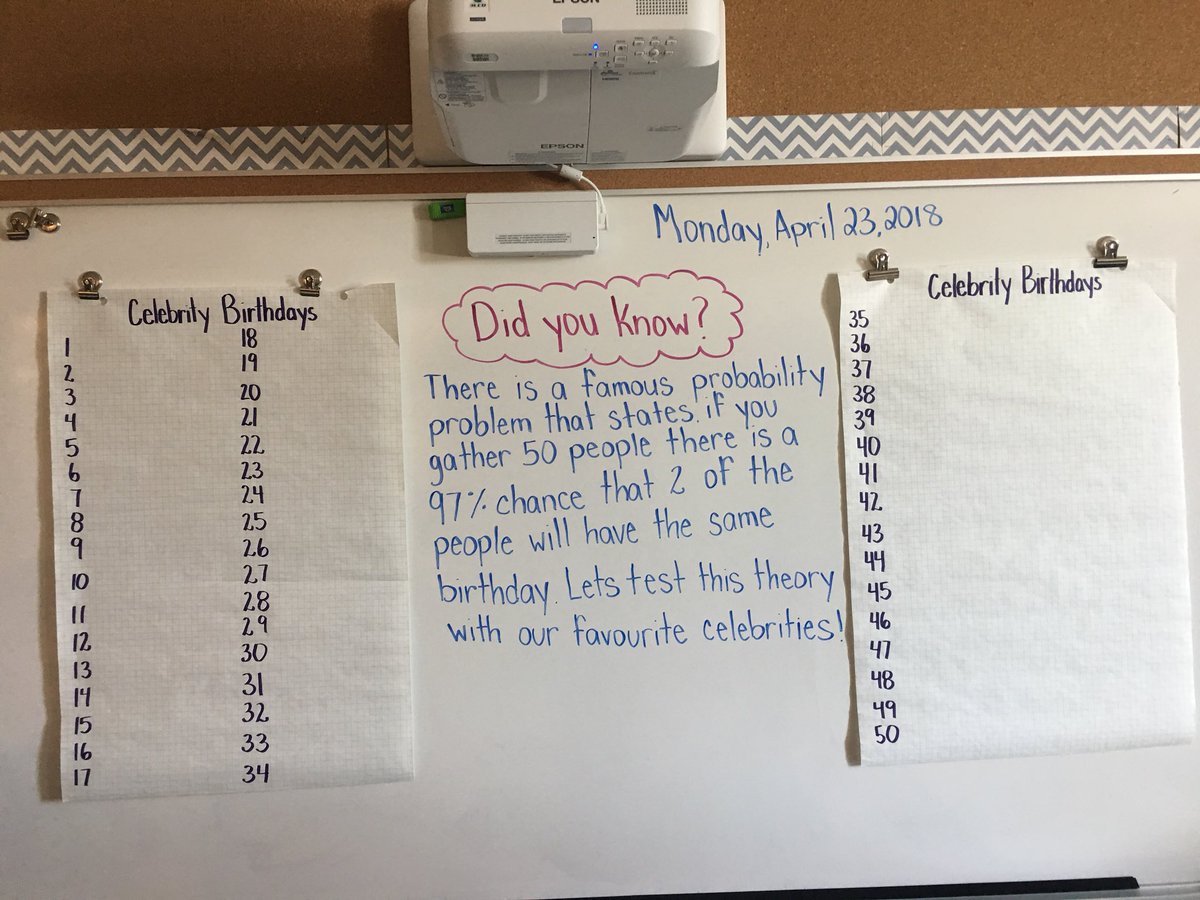 EPSON
EPSON
Monday, April 23, 2018
Celebrity Birthdays
1
2
3
4
5
6
7
8
9
10
11
12
13
14
15
16
17
18
19
20
21
22
23
24
25
26
27
28
29
30
31
32
33
34
Did you know?
There is a famous probability
problem that states. if you
gather 50 people there is a
97% chance that 2 of the
people will have the same
birthday. Lets test this theory
with our favourite celebrities!
Celebrity Birthdays
35
36
37
38
39
40
41
42
43
44
45
46
47
48
49
50